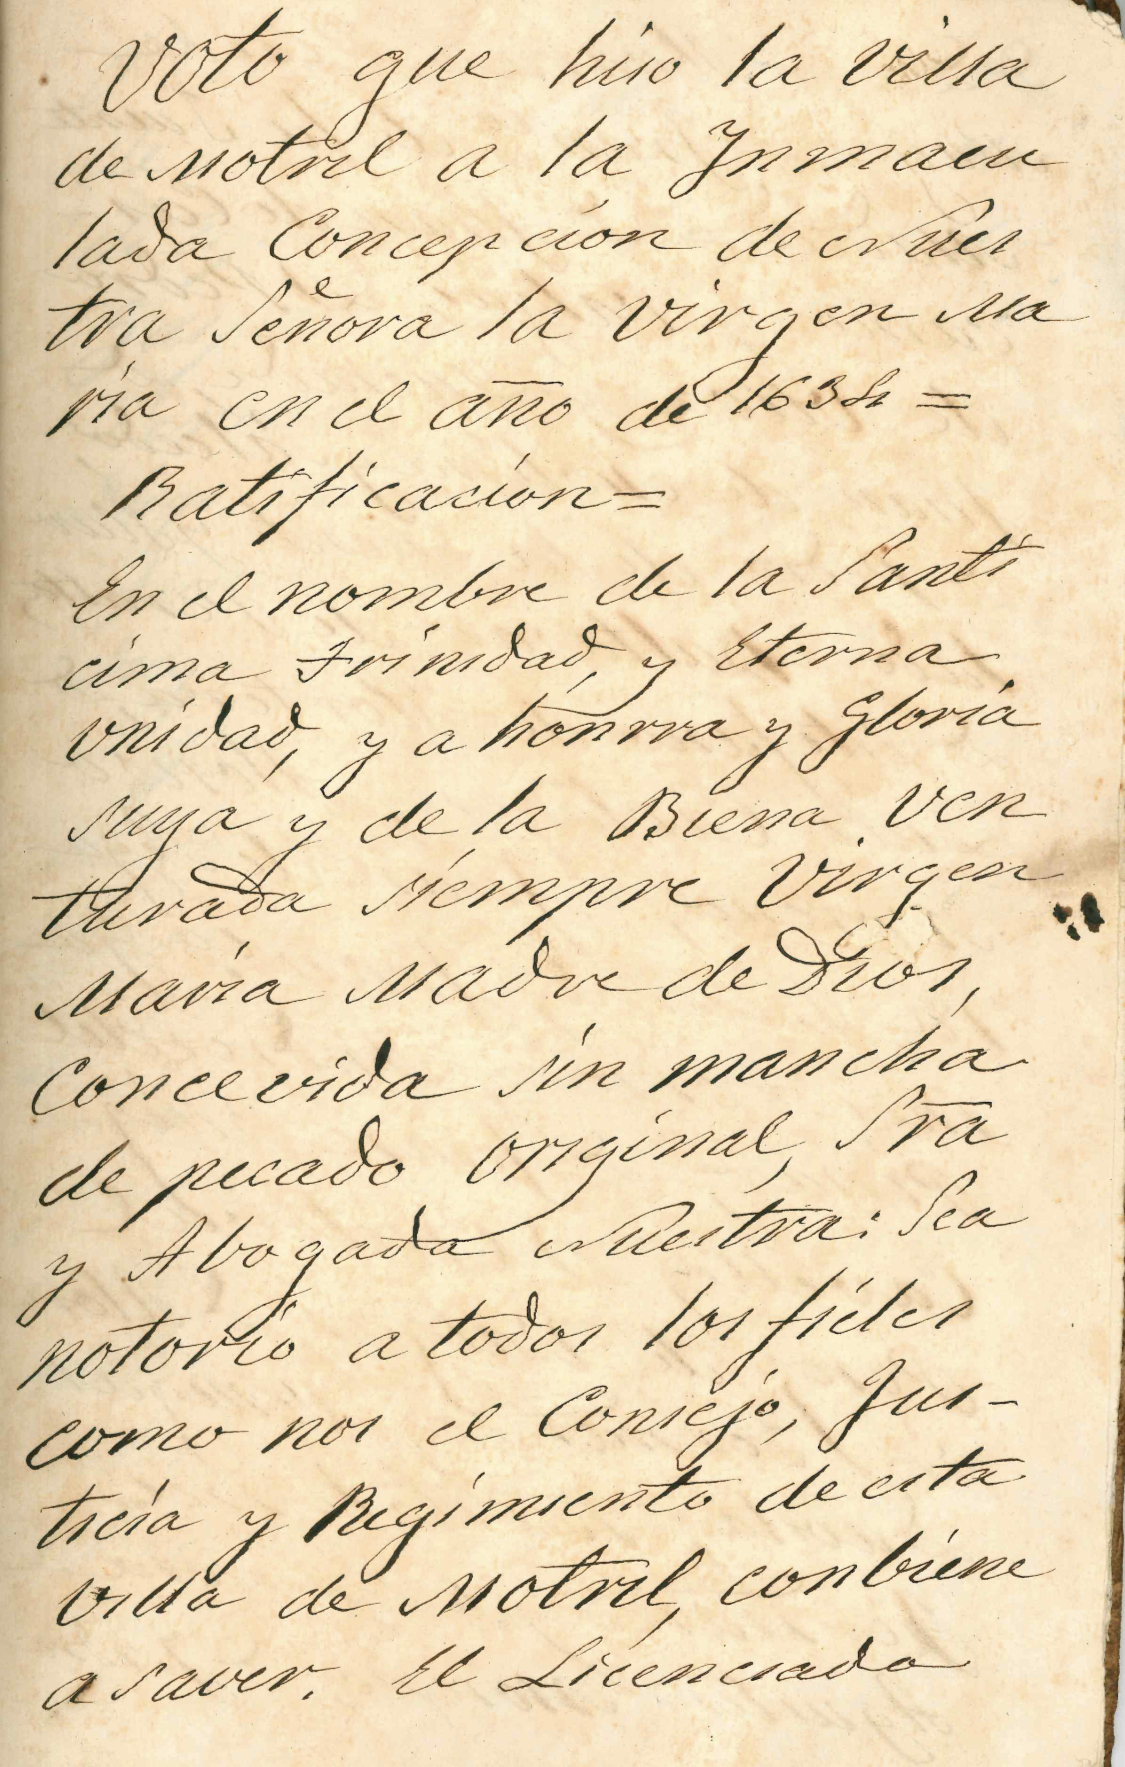 Voto que hiso la villa
de Motril a la Inmacu
lada Concepcion de Nues
tra Señora la Virgen Ma
ria en el año de 1634 =
Ratificacion =
En el nombre de la Santi
cima Trinidad, y Eterna
vnidad, y a honrra y Gloria
suya y de la Biena ven
turada siempre Virgen
Maria Madre de Dios,
Concevida sin mancha
de pecado original, Sra
y Abogada Nuestra: Sea
notorio a todos los fieles
como nos el Consejo, Jus-
ticia y Regimiento de esta
villa de Motril, conbiene
a saver. El Licenciado